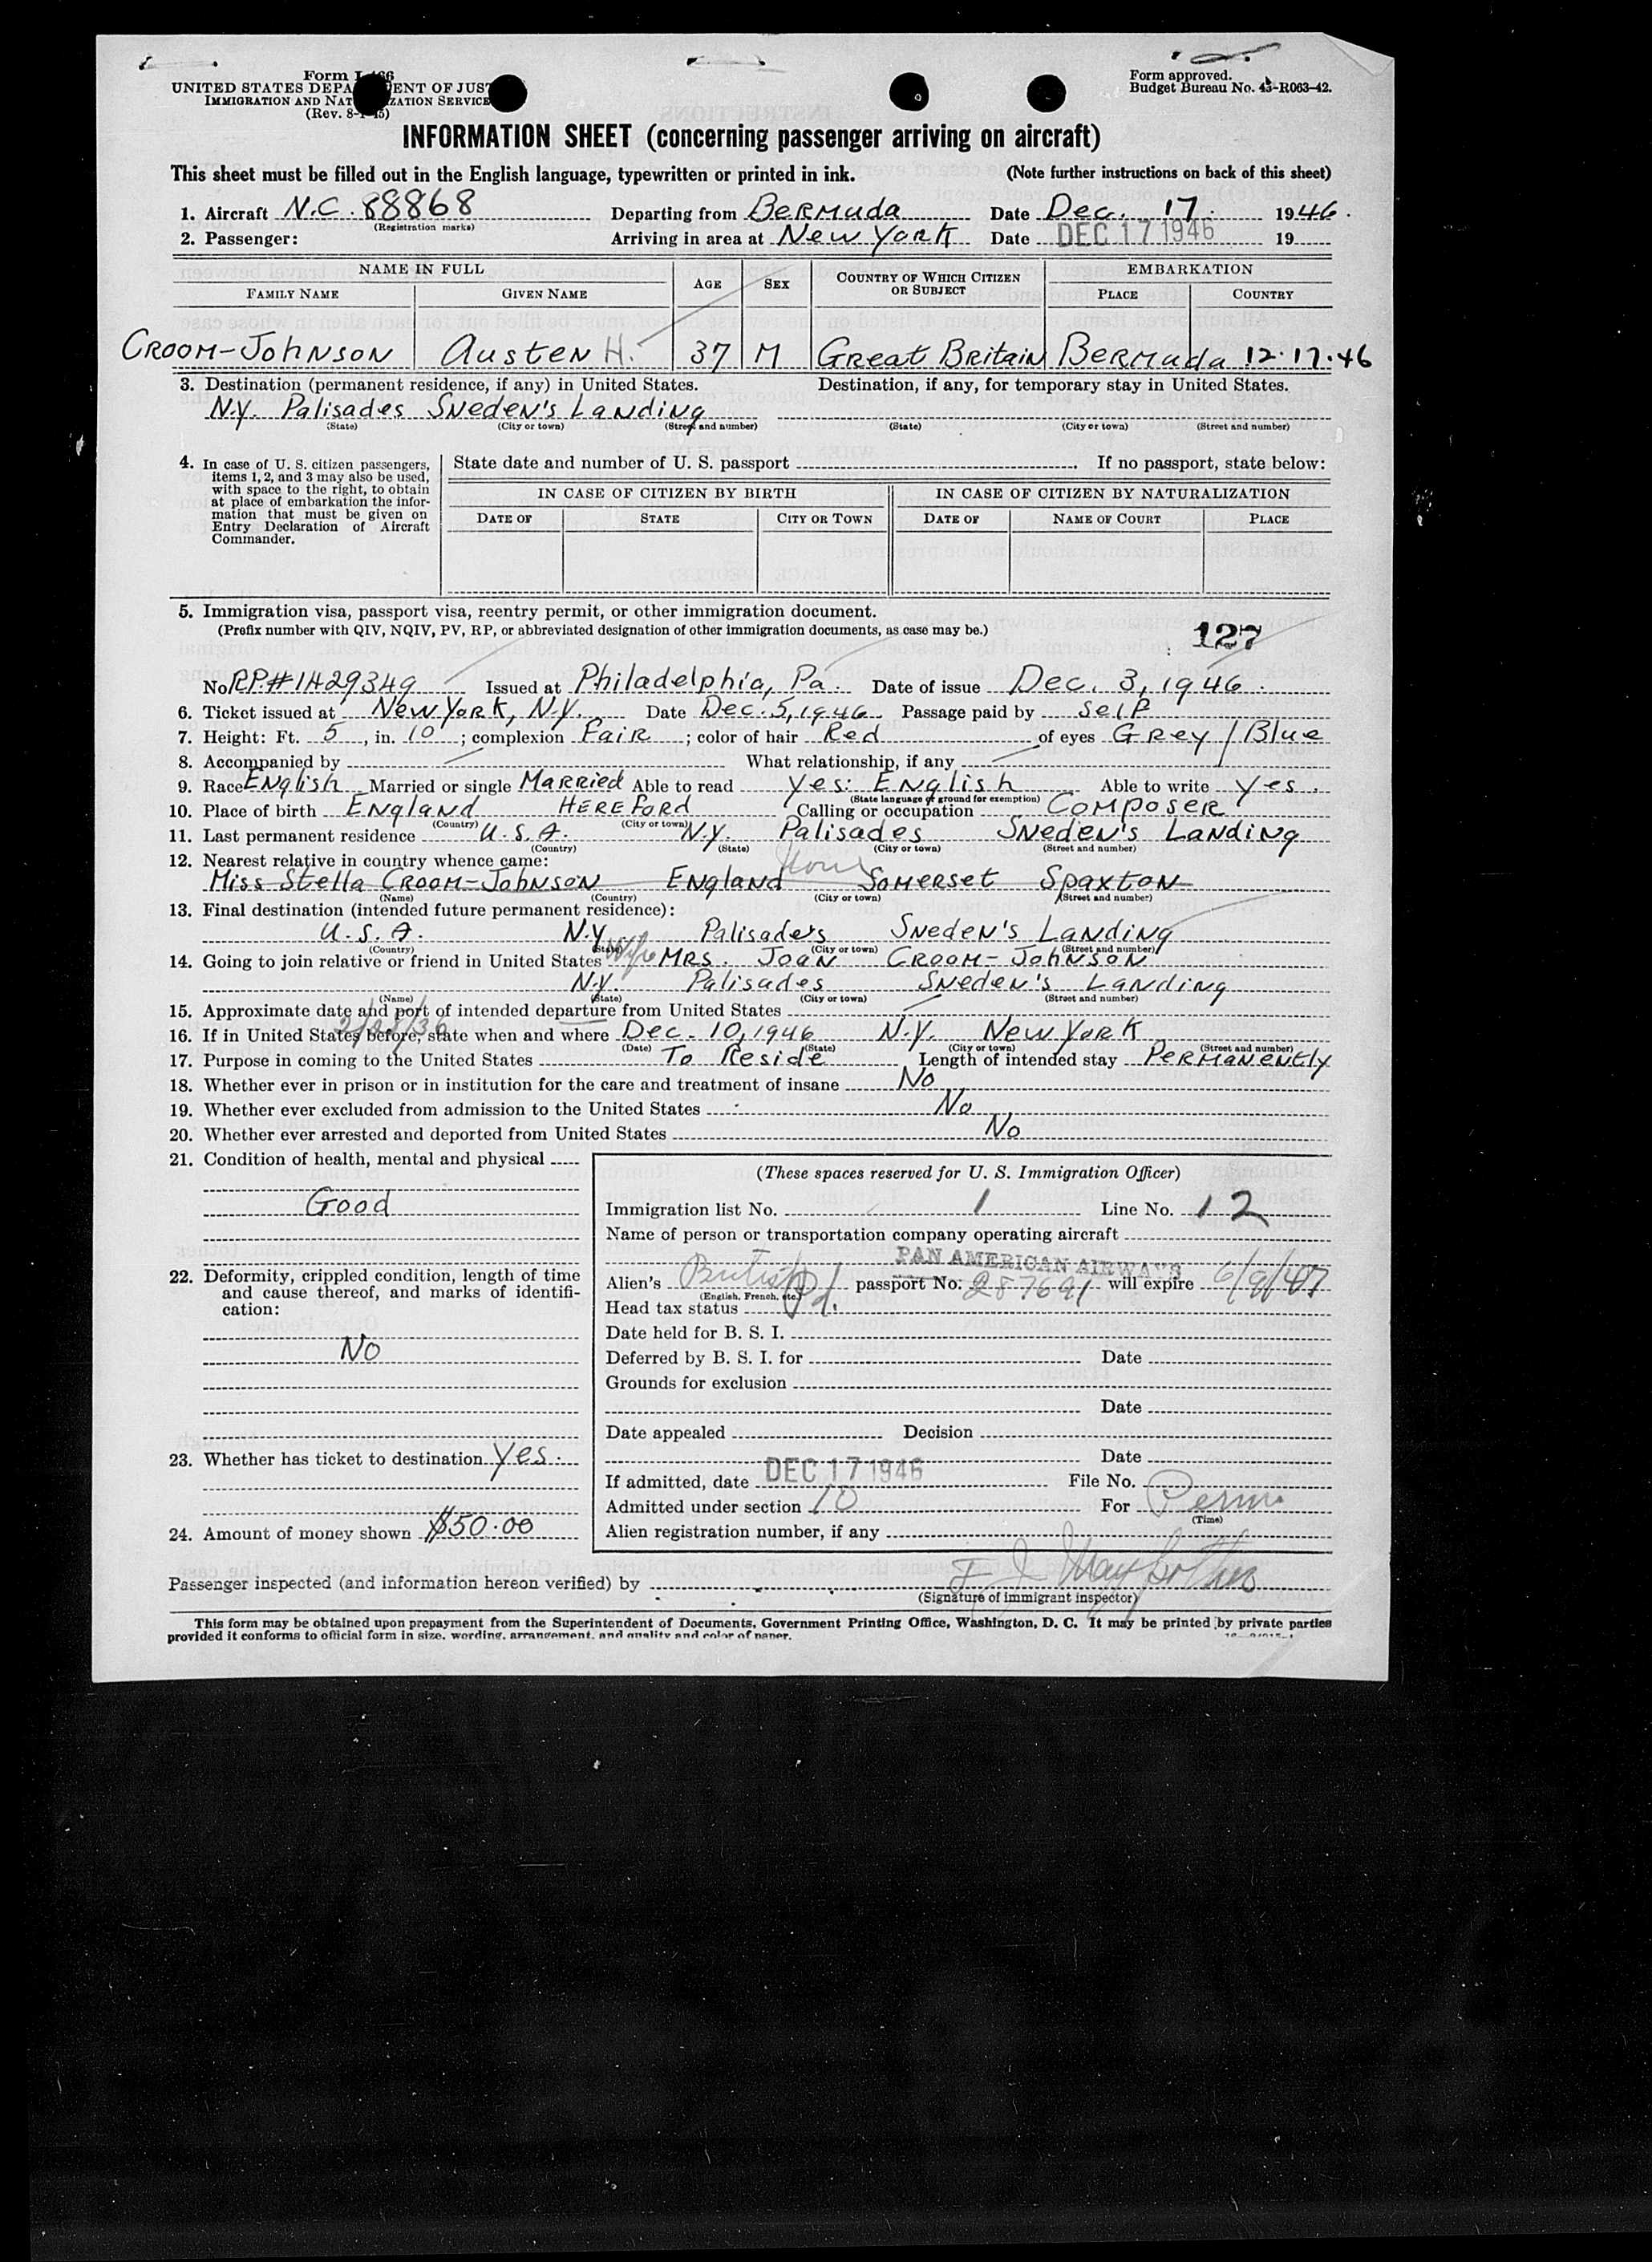 Form I-466
UNITED STATES DEPARTMENT OF JUSTICE
IMMIGRATION AND NATURALIZATION SERVICE
(Rev. 8-1-45)
Form approved.
Budget Bureau No. 43-R063-42.
INFORMATION SHEET (concerning passenger arriving on aircraft)
This sheet must be filled out in the English language, typewritten or printed in ink. (Note further instructions on back of this sheet)
1. Aircraft N.C. 88868 Departing from Bermuda Date Dec. 17. 1946.
(Registration marks)
2. Passenger: Arriving in area at New York Date DEC 17 1946 19
NAME IN FULL AGE SEX COUNTRY OF WHICH CITIZEN OR SUBJECT EMBARKATION
FAMILY NAME GIVEN NAME PLACE COUNTRY
Croom-Johnson Austen H. 37 M Great Britain Bermuda 12.17.46
3. Destination (permanent residence, if any) in United States. Destination, if any, for temporary stay in United States.
N.Y. Palisades Sneden's Landing
(State) (City or town) (Street and number) (State) (City or town) (Street and number)
4. In case of U. S. citizen passengers, items 1, 2, and 3 may also be used, with space to the right, to obtain at place of embarkation the information that must be given on Entry Declaration of Aircraft Commander.
State date and number of U. S. passport . If no passport, state below:
IN CASE OF CITIZEN BY BIRTH IN CASE OF CITIZEN BY NATURALIZATION
DATE OF STATE CITY OR TOWN DATE OF NAME OF COURT PLACE
5. Immigration visa, passport visa, reentry permit, or other immigration document.
(Prefix number with QIV, NQIV, PV, RP, or abbreviated designation of other immigration documents, as case may be.)
127
No. RP.#1429349 Issued at Philadelphia, Pa. Date of issue Dec. 3, 1946.
6. Ticket issued at New York, N.Y. Date Dec. 5, 1946 Passage paid by Self
7. Height: Ft. 5, in. 10; complexion Fair; color of hair Red of eyes Grey/Blue
8. Accompanied by What relationship, if any
9. Race English Married or single Married Able to read Yes: English Able to write Yes.
(State language or ground for exemption)
10. Place of birth England Hereford Calling or occupation Composer
(Country) (City or town)
11. Last permanent residence U.S.A. N.Y. Palisades Sneden's Landing
(Country) (State) (City or town) (Street and number)
12. Nearest relative in country whence came:
Miss Stella Croom-Johnson England Somerset Spaxton
(Name) (Country) (City or town) (Street and number)
13. Final destination (intended future permanent residence):
U.S.A. N.Y. Palisades Sneden's Landing
(Country) (State) (City or town) (Street and number)
14. Going to join relative or friend in United States Wife Mrs. Joan Croom-Johnson
N.Y. Palisades Sneden's Landing
(Name) (State) (City or town) (Street and number)
15. Approximate date and port of intended departure from United States
2/28/36
16. If in United States before, state when and where Dec. 10, 1946 N.Y. New York
(Date) (State) (City or town) (Street and number)
17. Purpose in coming to the United States To Reside Length of intended stay Permanently
18. Whether ever in prison or in institution for the care and treatment of insane No
19. Whether ever excluded from admission to the United States No
20. Whether ever arrested and deported from United States No
21. Condition of health, mental and physical
Good
22. Deformity, crippled condition, length of time and cause thereof, and marks of identification:
No
23. Whether has ticket to destination Yes.
24. Amount of money shown $50.00
(These spaces reserved for U. S. Immigration Officer)
Immigration list No. 1 Line No. 12
Name of person or transportation company operating aircraft
PAN AMERICAN AIRWAYS
Alien's British passport No. 287691 will expire 6/9/47
(English, French, etc.)
Head tax status Pd.
Date held for B. S. I.
Deferred by B. S. I. for Date
Grounds for exclusion
Date
Date appealed Decision
Date
If admitted, date DEC 17 1946 File No.
Admitted under section 10 For Perm.
(Time)
Alien registration number, if any
Passenger inspected (and information hereon verified) by
(Signature of immigrant inspector)
This form may be obtained upon prepayment from the Superintendent of Documents, Government Printing Office, Washington, D. C. It may be printed by private parties
provided it conforms to official form in size, wording, arrangement, and quality and color of paper.